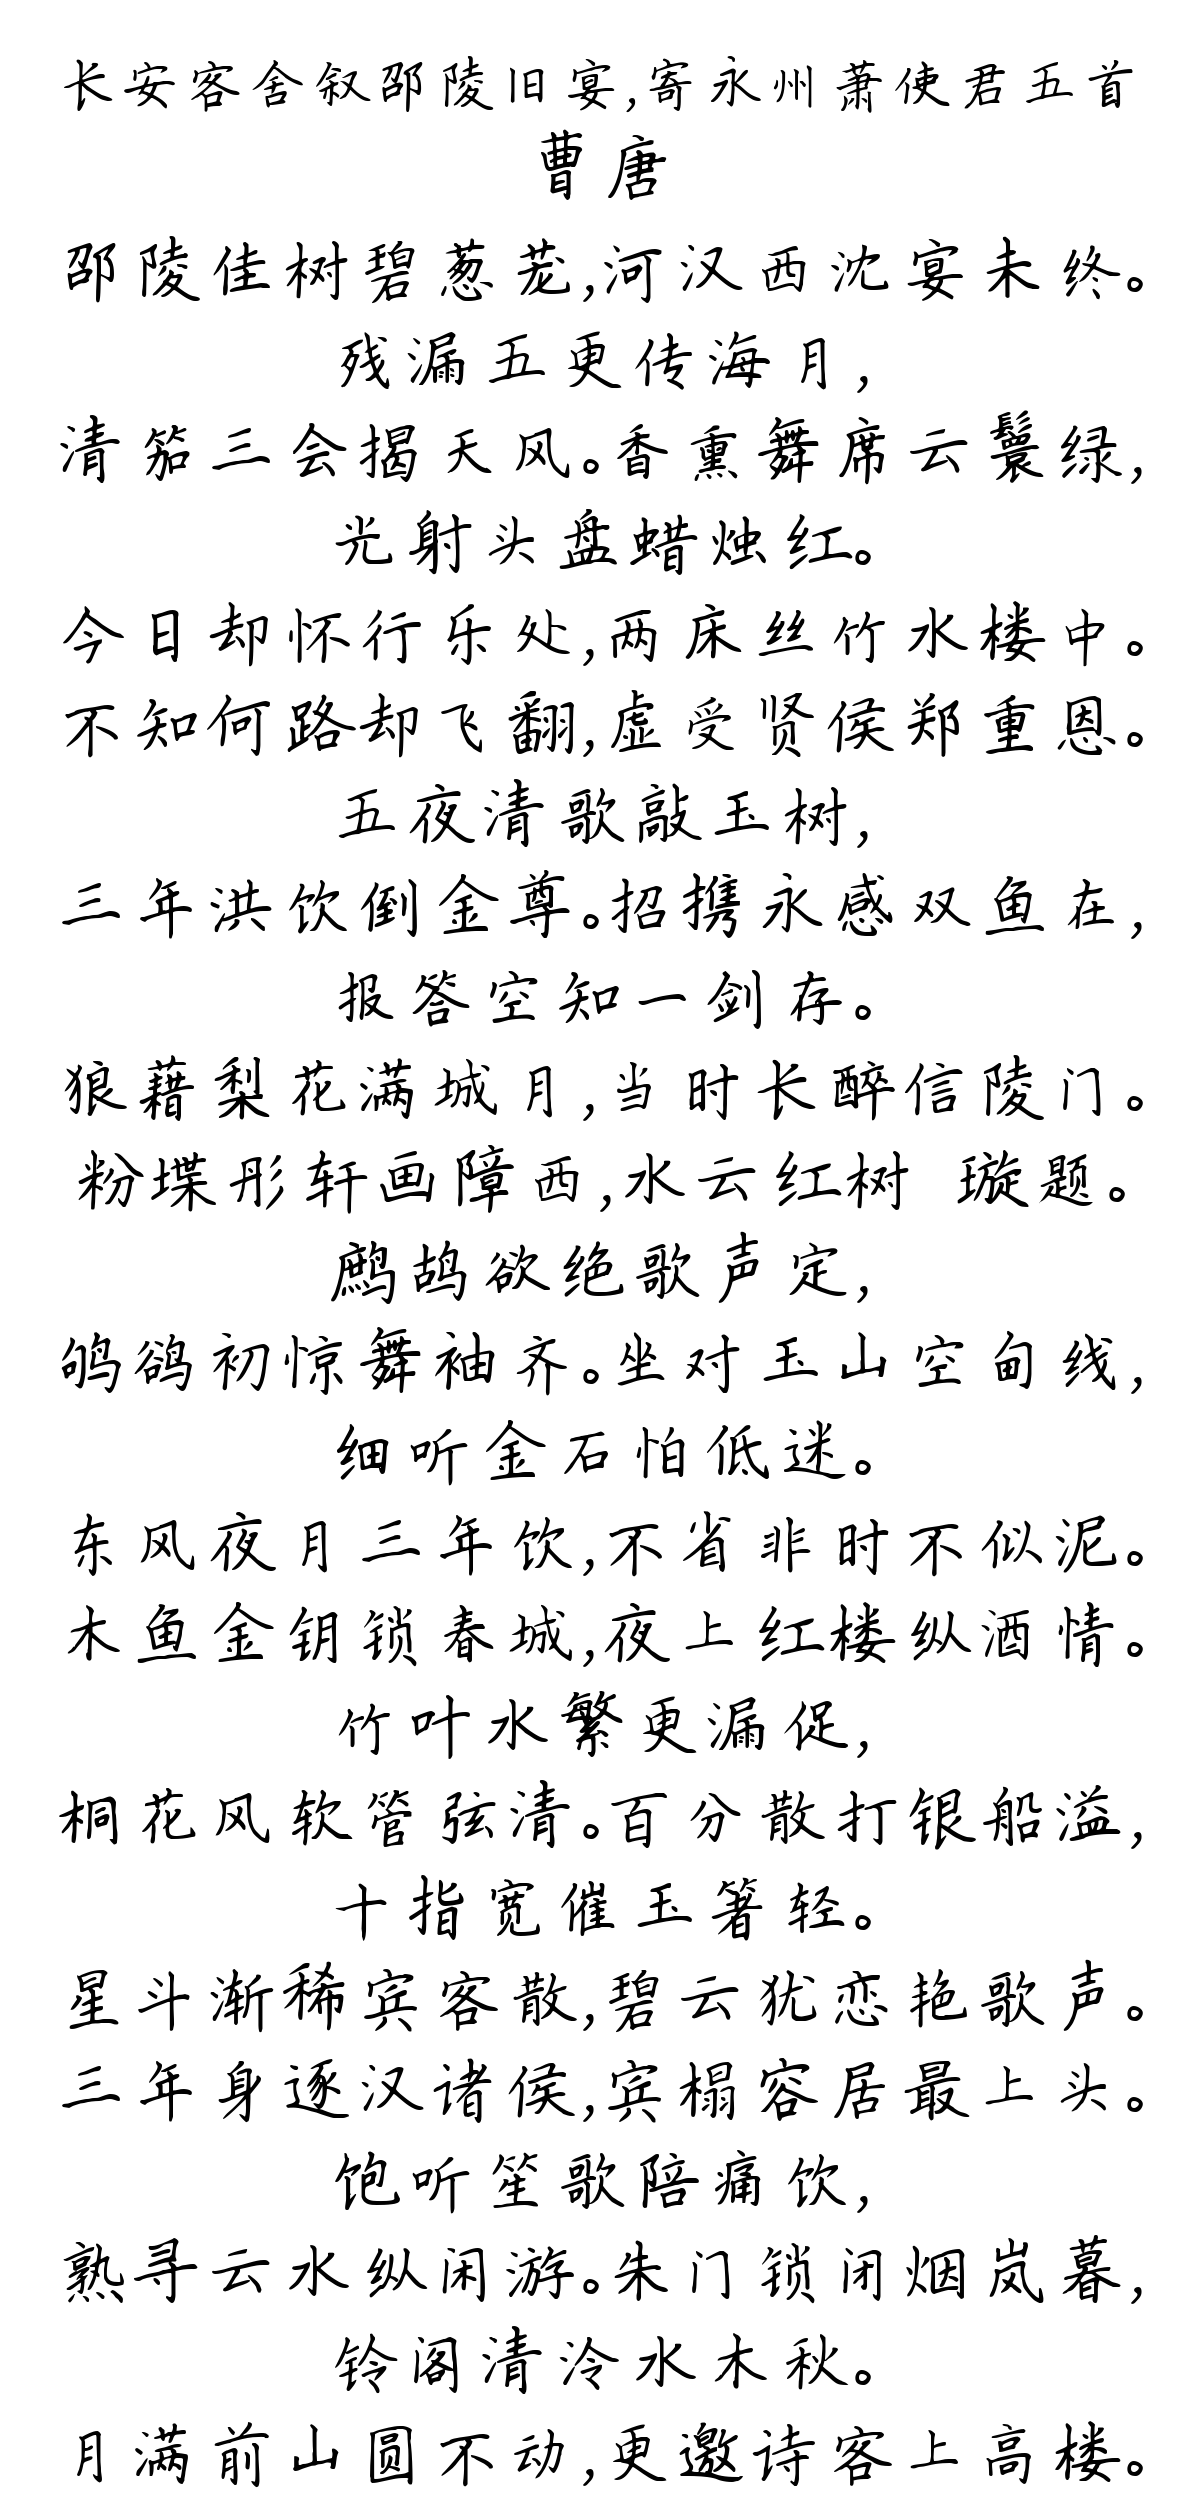 长安客舍叙邵陵旧宴,寄永州萧使君五首
曹唐
邵陵佳树碧葱茏,河汉西沈宴未终。
残漏五更传海月,
清笳三会揭天风。香熏舞席云鬟绿,
光射头盘蜡烛红。
今日却怀行乐处,两床丝竹水楼中。
不知何路却飞翻,虚受贤侯郑重恩。
五夜清歌敲玉树,
三年洪饮倒金尊。招携永感双鱼在,
报答空知一剑存。
狼藉梨花满城月,当时长醉信陵门。
粉堞彤轩画障西,水云红树 璇题。
鹧鸪欲绝歌声定,
鸲鹆初惊舞袖齐。坐对玉山空甸线,
细听金石怕低迷。
东风夜月三年饮,不省非时不似泥。
木鱼金钥锁春城,夜上红楼纵酒情。
竹叶水繁更漏促,
桐花风软管弦清。百分散打银船溢,
十指宽催玉箸轻。
星斗渐稀宾客散,碧云犹恋艳歌声。
三年身逐汉诸侯,宾榻容居最上头。
饱听笙歌陪痛饮,
熟寻云水纵闲游。朱门锁闭烟岚暮,
铃阁清泠水木秋。
月满前山圆不动,更邀诗客上高楼。